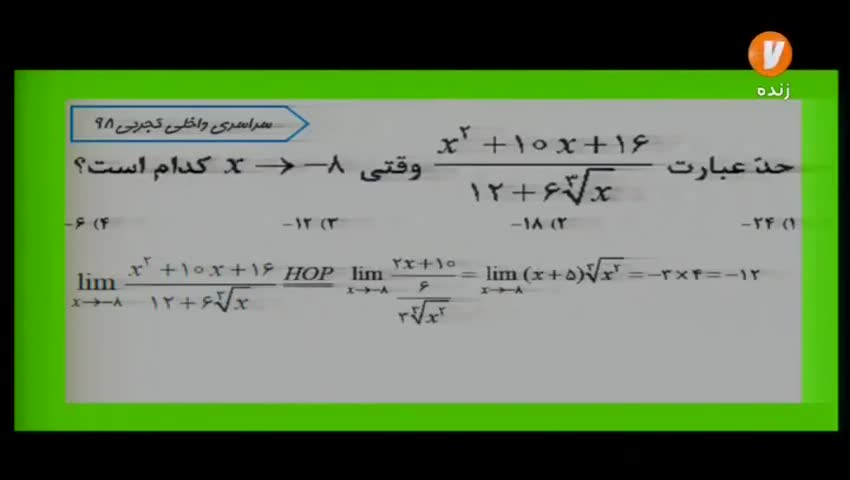 ۷
زنده
سراسری داخلی تجربی ۹۸
حدّ عبارت \frac{x^۲ + ۱۰x + ۱۶}{۱۲ + ۶\sqrt[۳]{x}} وقتی x → −۸ کدام است؟
۱) −۲۴ ۲) −۱۸ ۳) −۱۲ ۴) −۶
\lim_{x→−۸} \frac{x^۲ + ۱۰x + ۱۶}{۱۲ + ۶\sqrt[۳]{x}} \overset{HOP}{=} \lim_{x→−۸} \frac{۲x + ۱۰}{\frac{۶}{۳\sqrt[۳]{x^۲}}} = \lim_{x→−۸} (x + ۵)\sqrt[۳]{x^۲} = −۳ × ۴ = −۱۲